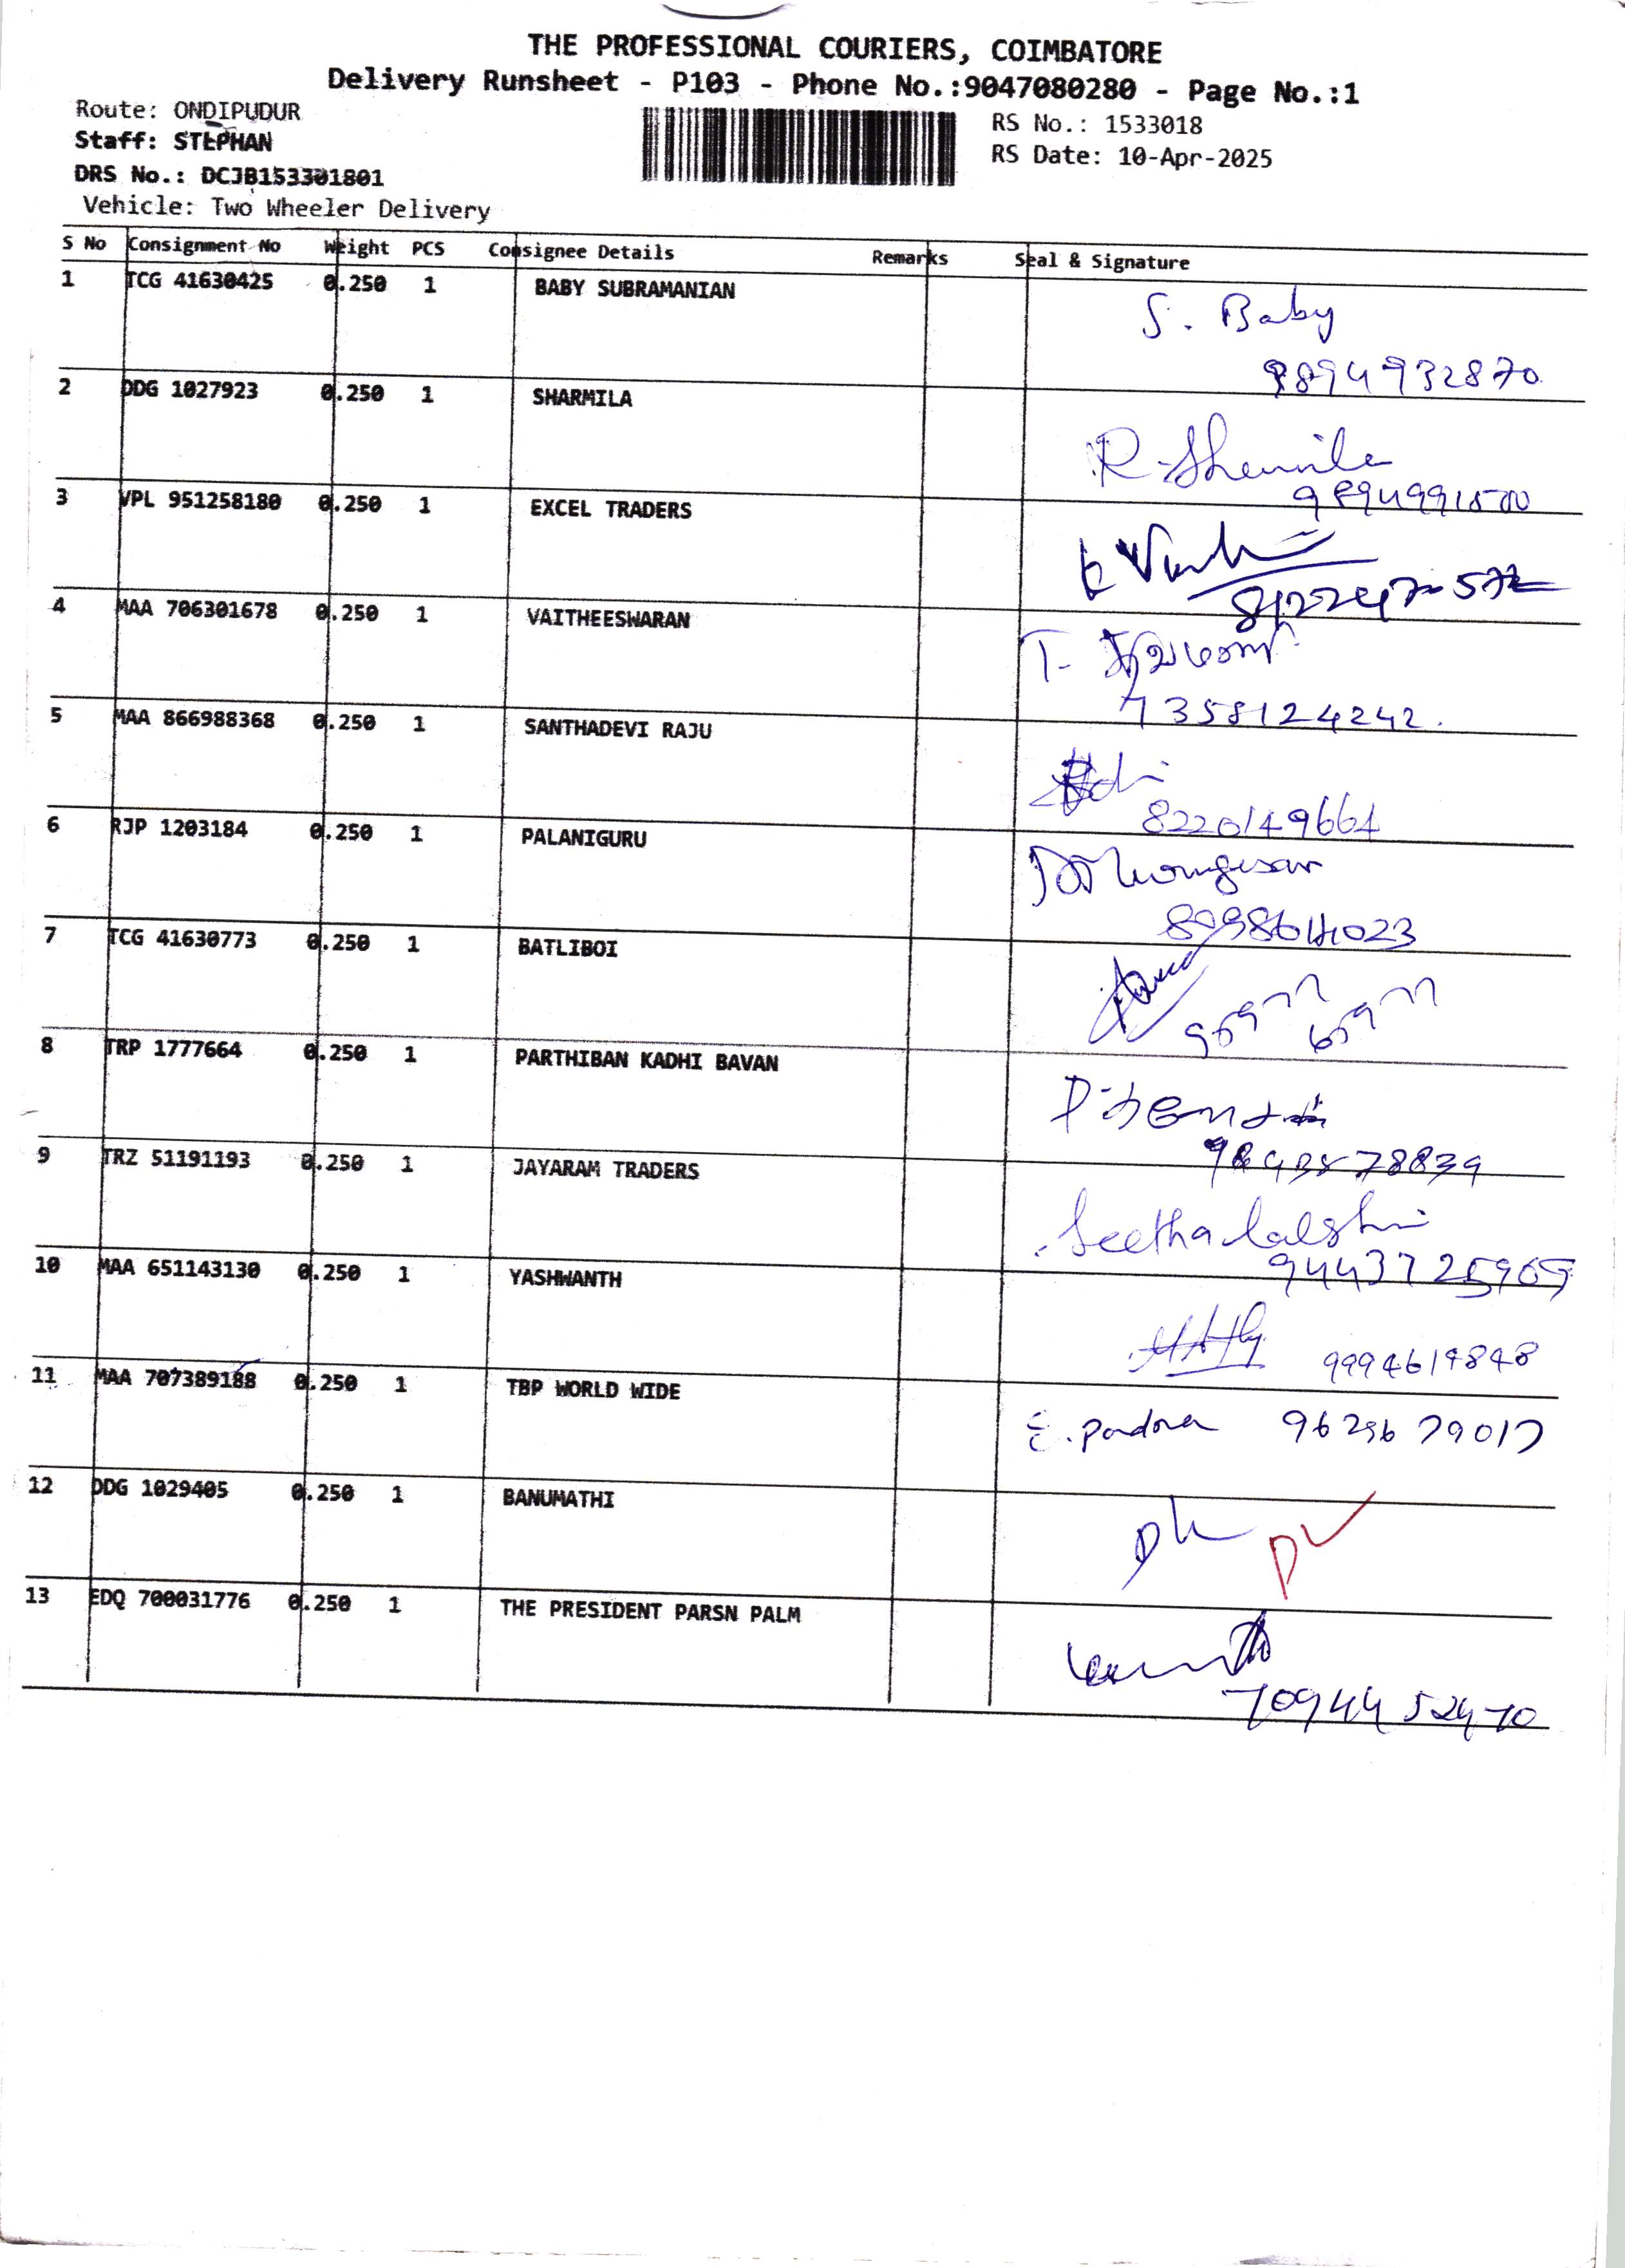 THE PROFESSIONAL COURIERS, COIMBATORE
Delivery Runsheet - P103 - Phone No.:9047080280 - Page No.:1
Route: ONDIPUDUR
Staff: STEPHAN
DRS No.: DCJB153301801
Vehicle: Two Wheeler Delivery
RS No.: 1533018
RS Date: 10-Apr-2025
S No Consignment No Weight PCS Consignee Details Remarks Seal & Signature
1 TCG 41630425 0.250 1 BABY SUBRAMANIAN
S. Baby
9894932870
2 DDG 1027923 0.250 1 SHARMILA
R.
3 VPL 951258180 0.250 1 EXCEL TRADERS
4 MAA 706301678 0.250 1 VAITHEESWARAN
T-
7358124242.
5 MAA 866988368 0.250 1 SANTHADEVI RAJU
8220149664
6 RJP 1203184 0.250 1 PALANIGURU
7 TCG 41630773 0.250 1 BATLIBOI
8 TRP 1777664 0.250 1 PARTHIBAN KADHI BAVAN
9 TRZ 51191193 0.250 1 JAYARAM TRADERS
Seethalakshmi
10 MAA 651143130 0.250 1 YASHWANTH
9994619848
11 MAA 707389188 0.250 1 TBP WORLD WIDE
9629679017
12 DDG 1029405 0.250 1 BANUMATHI
13 EDQ 700031776 0.250 1 THE PRESIDENT PARSN PALM
7094452470